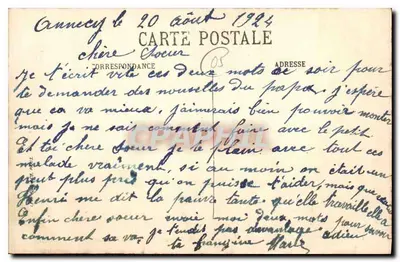 Annecy le 20 Août 1924
CARTE POSTALE
chère Soeur
CORRESPONDANCE
ADRESSE
05
Je t'écrit vite ces deux mots ce soir pour
te demander des nouvelles du papa, j'espère
que ca va mieux, j'aimerais bien pouvoir monter
mais je ne sais comment fair avec le petit
Et toi chère soeur je te plein avec tout ces
malade vraiment, si au moin on était un
peut plus près qu'on puisse t'aider, mais que
Henri me dit la pauvre tante qu'elle travaille elle a
Enfin chère soeur envoi moi deux mots pour
comment sa va, je t'en dis pas davantage adieu
ta frangine